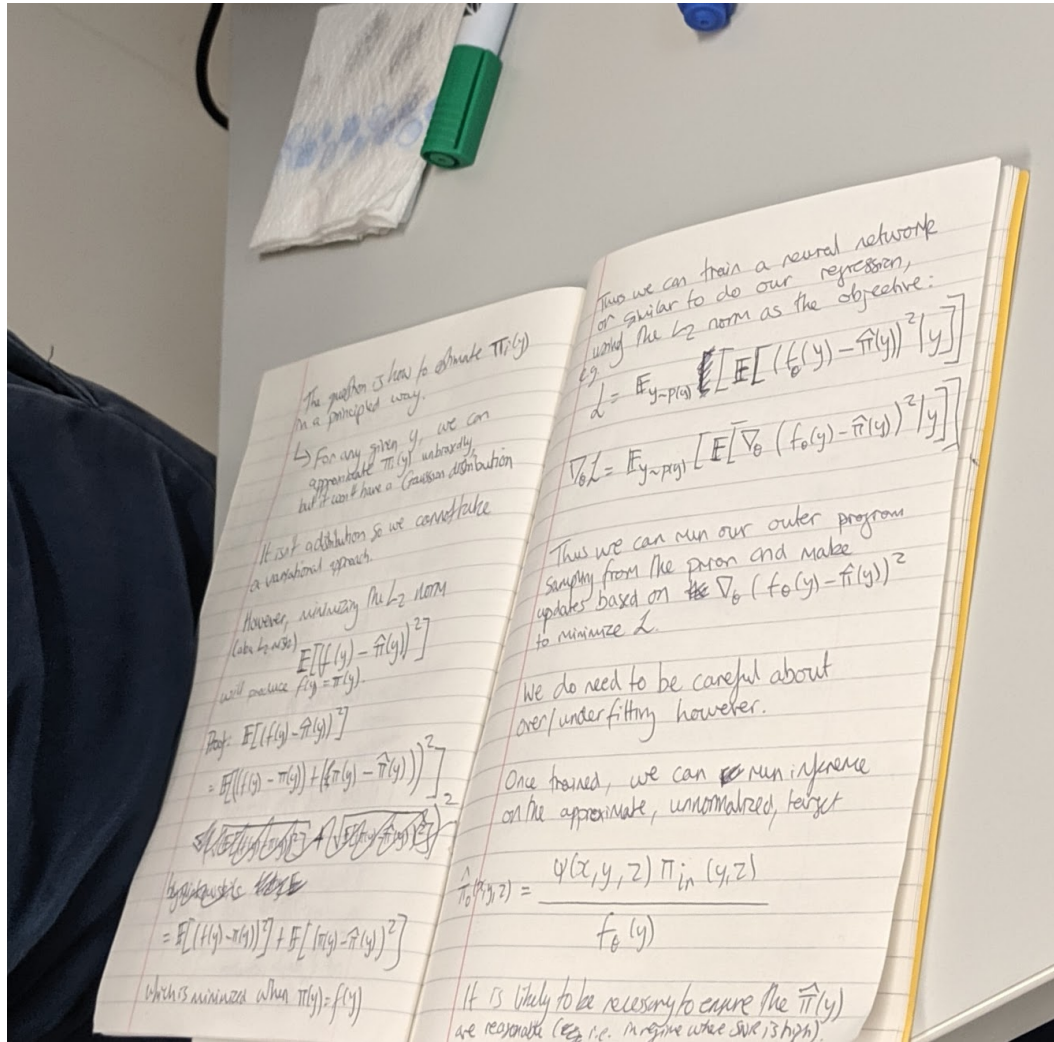 The question is how to estimate πᵢ(y)
in a principled way.
↳ For any given y, we can
approximate πᵢ(y) unbiasedly,
but it won't have a Gaussian distribution
It isn't a distribution so we cannot take
a variational approach.
However, minimizing the L₂ norm
E[(f(y) - π̂(y))²]
will produce f(y) = π(y).
Proof: E[(f(y) - π̂(y))²]
= E[((f(y) - π(y)) + (π(y) - π̂(y)))²]
= E[(f(y) - π(y))²] + E[(π(y) - π̂(y))²]
which is minimized when π(y) = f(y)
Thus we can train a neural network
or similar to do our regression,
using the L₂ norm as the objective:
e.g.
L = E_{y~p(y)} [E[(f_θ(y) - π̂(y))² | y]]
∇_θ L = E_{y~p(y)} [E[∇_θ (f_θ(y) - π̂(y))² | y]]
Thus we can run our outer program
sampling from the prior and make
updates based on ∇_θ (f_θ(y) - π̂(y))²
to minimize L.
We do need to be careful about
over/underfitting however.
Once trained, we can run inference
on the approximate, unnormalized, target
π̂_θ(x,y,z) = ψ(x,y,z) π_in (y,z)
f_θ(y)
It is likely to be necessary to ensure the π̂(y)
are reasonable (i.e. in regime where SNR is high)